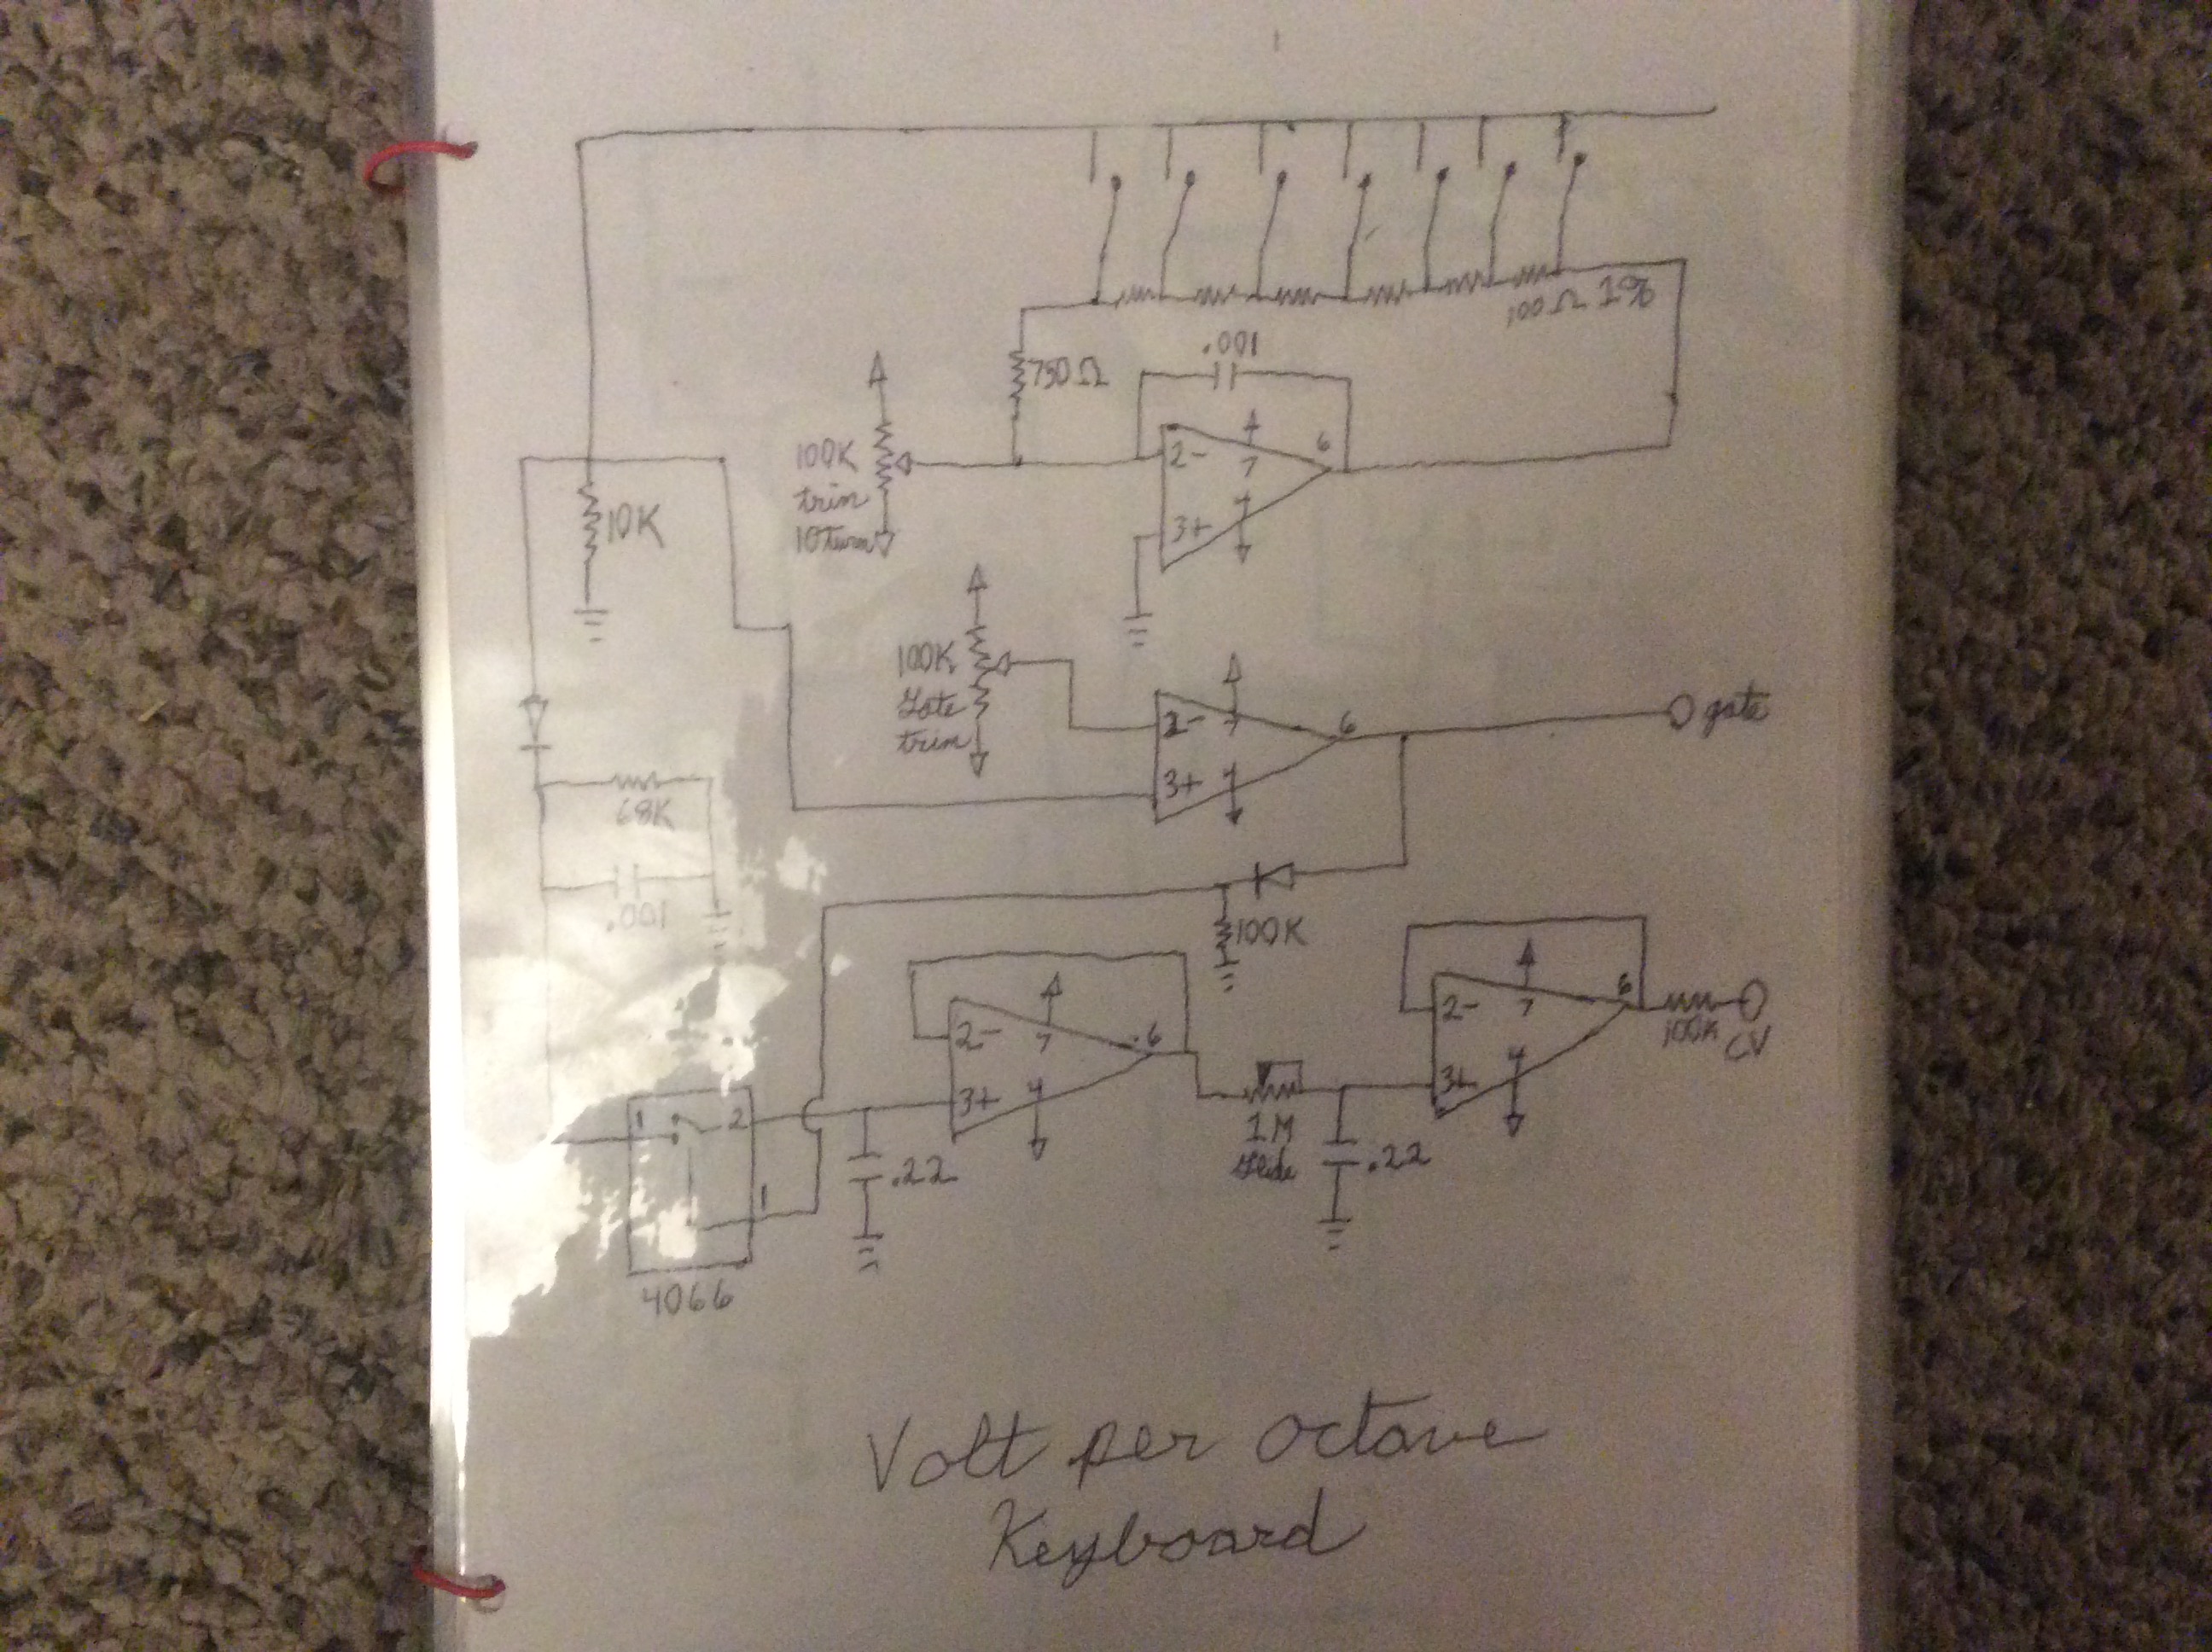 100Ω 1%
.001
750Ω
100K
trim
10 Turn
2-
7
6
4
3+
10K
100K
Gate
trim
2-
7
6
4
3+
gate
68K
.001
100K
2-
7
6
4
3+
2-
7
6
4
3+
100K
CV
1
2
1
.22
1M
Glide
.22
4066
Volt per octave
Keyboard